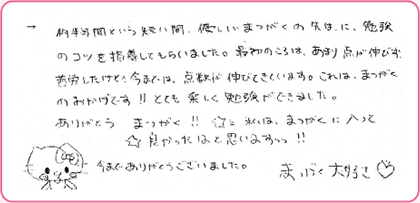 → 約半年間という短い間、優しいまつがくの先生に、勉強
のコツを指導してもらいました。最初のころは、あまり点が伸びず、
苦労したけど、今までは、点数が伸びてきています。これは、まつがく
のおかげです!! とても楽しく勉強ができました。
ありがとう まつがく!! ☆ 私は、まつがくに入って
☆良かったなと思いますっっ!!
今までありがとうございました。 まつがく大好き♡